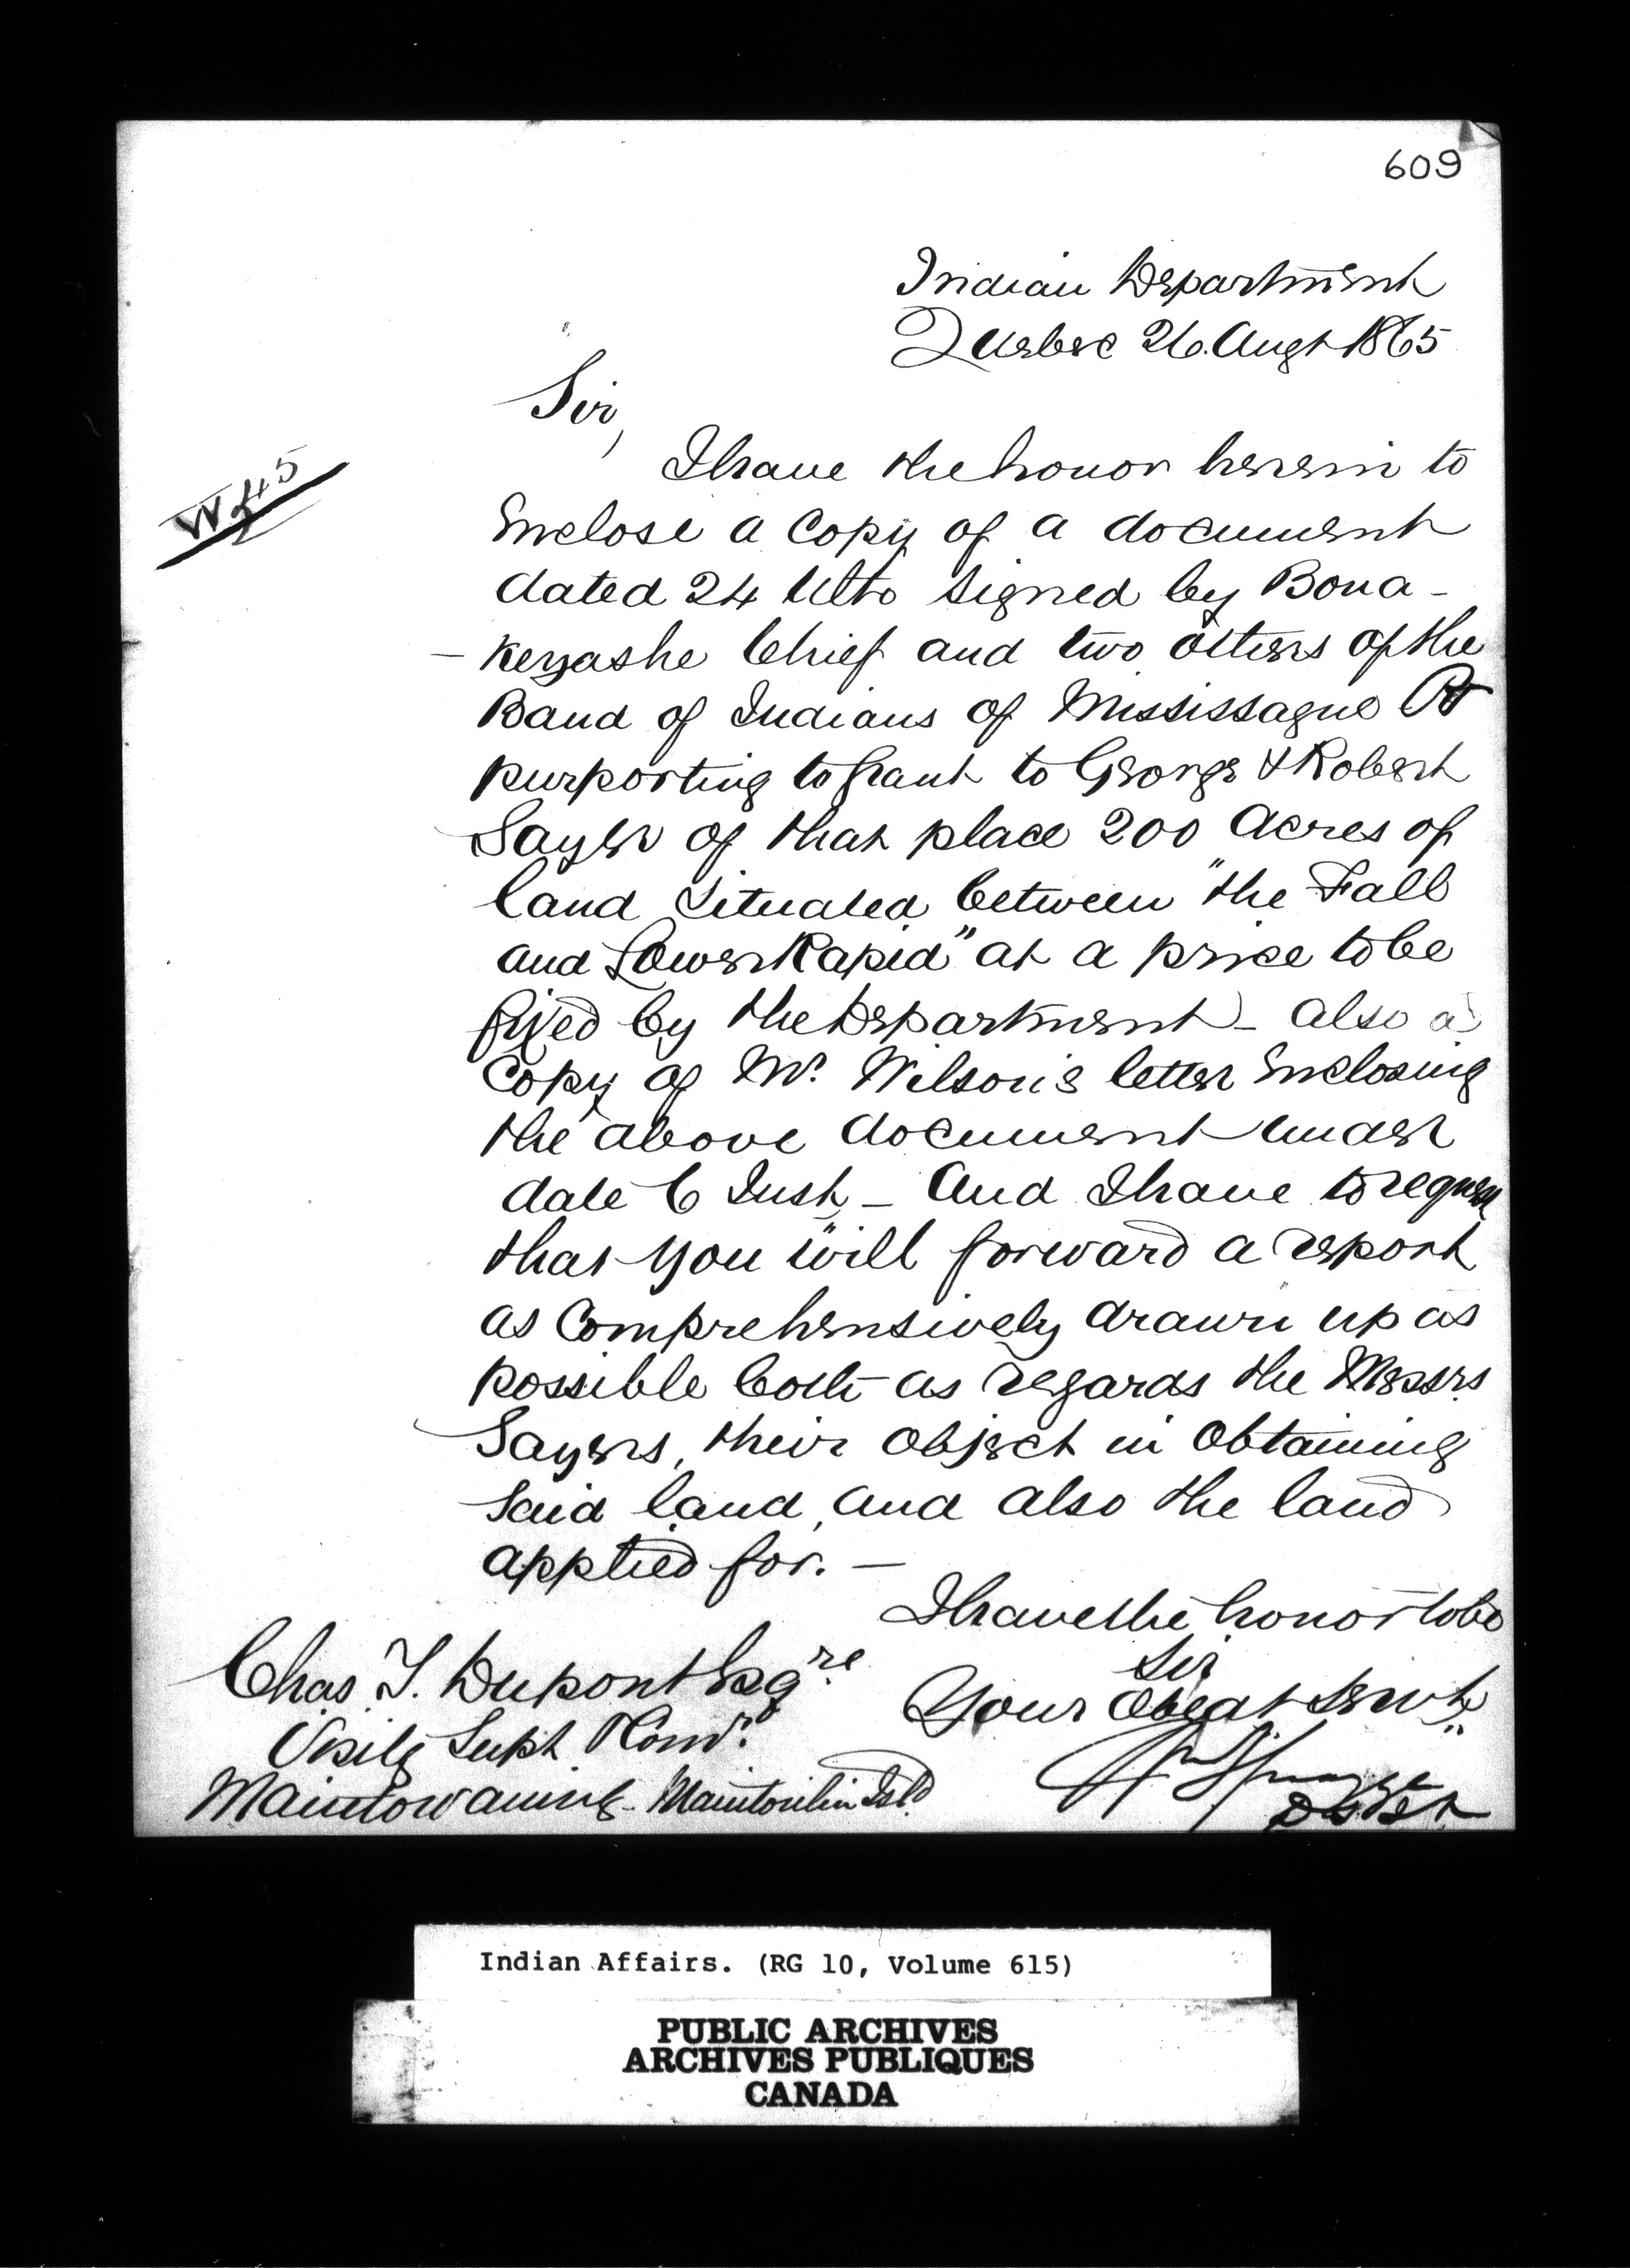 609
Indian Department
Quebec 26. Augt 1865
Sir,
W 245
I have the honor herein to
Enclose a Copy of a document
dated 24 Ulto signed by Bona-
-keyashe Chief and two others of the
Band of Indians of Mississague R
purporting to grant to George & Robert
Sayer of that place 200 Acres of
land situated between "the Fall
and Lower Rapid" at a price to be
fixed by the Department - also a
Copy of Mr. Wilson's letter Enclosing
the above document under
date 6 Inst - And I have to request
that you will forward a report
as Comprehensively drawn up as
possible both as regards the Messrs
Sayers, their object in obtaining
said land, and also the land
applied for. -
I have the honor to be
Sir
Your Obedt Servt
Chas T. Dupont Esqre
Visitg Supt & Comr.
Manitowaning - Manitoulin Isld
Indian Affairs. (RG 10, Volume 615)
PUBLIC ARCHIVES
ARCHIVES PUBLIQUES
CANADA